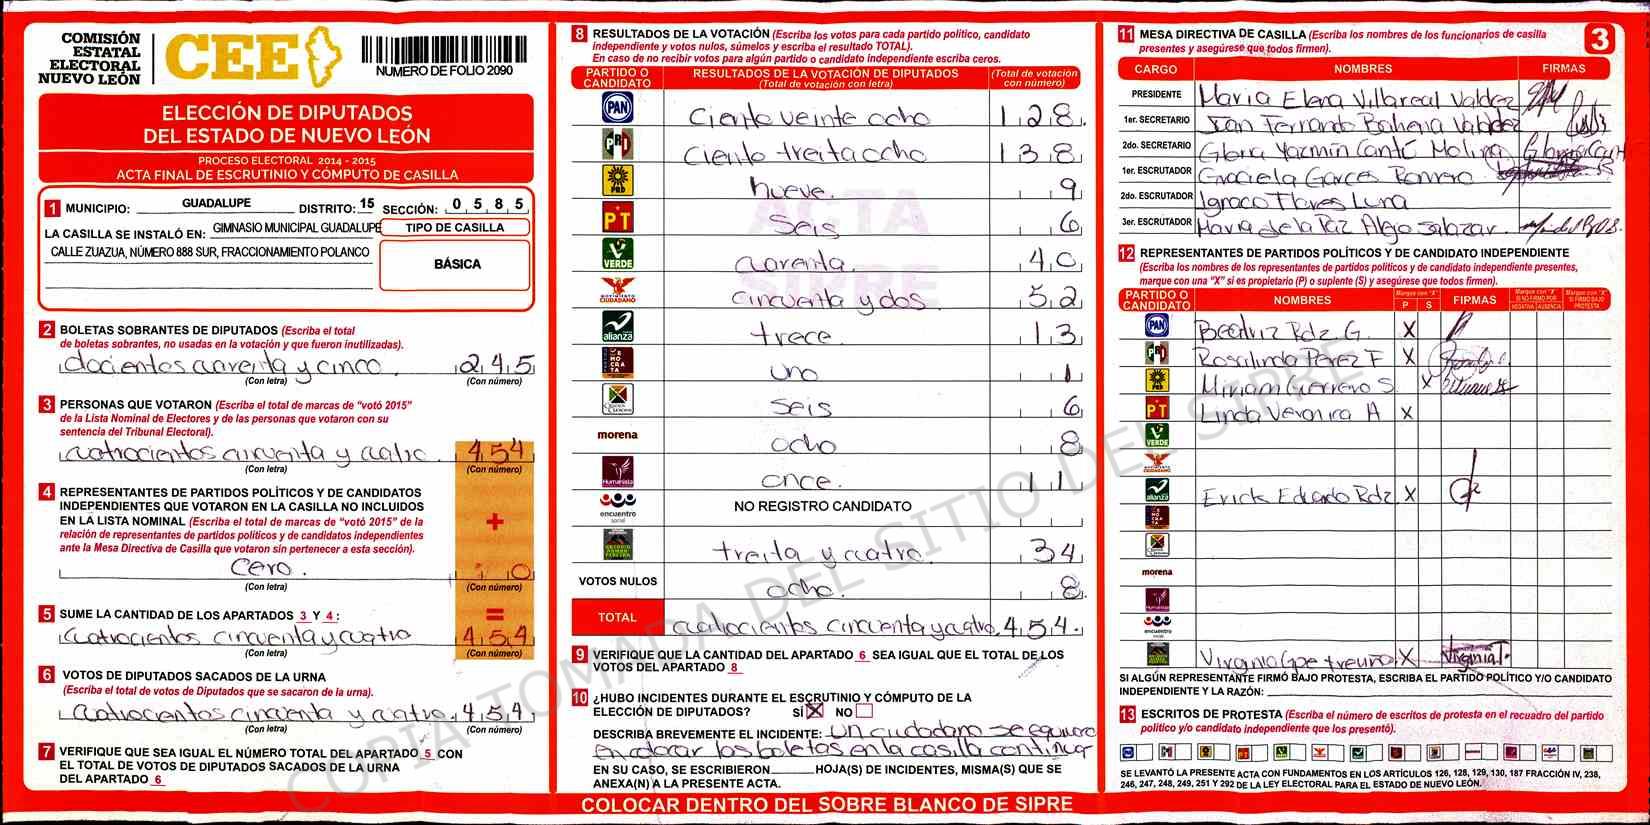 COMISIÓN
ESTATAL
ELECTORAL
NUEVO LEÓN
CEE
NUMERO DE FOLIO 2090
ELECCIÓN DE DIPUTADOS
DEL ESTADO DE NUEVO LEÓN
PROCESO ELECTORAL 2014 - 2015
ACTA FINAL DE ESCRUTINIO Y CÓMPUTO DE CASILLA
1 MUNICIPIO: GUADALUPE DISTRITO: 15 SECCIÓN: 0 5 8 5
LA CASILLA SE INSTALÓ EN: GIMNASIO MUNICIPAL GUADALUPE
CALLE ZUAZUA, NÚMERO 888 SUR, FRACCIONAMIENTO POLANCO
TIPO DE CASILLA
BÁSICA
2 BOLETAS SOBRANTES DE DIPUTADOS (Escriba el total
de boletas sobrantes, no usadas en la votación y que fueron inutilizadas).
docientos cuarenta y cinco 245
(Con letra) (Con número)
3 PERSONAS QUE VOTARON (Escriba el total de marcas de "votó 2015"
de la Lista Nominal de Electores y de las personas que votaron con su
sentencia del Tribunal Electoral).
cuatrocientos cincuenta y cuatro. 454
(Con letra) (Con número)
4 REPRESENTANTES DE PARTIDOS POLÍTICOS Y DE CANDIDATOS
INDEPENDIENTES QUE VOTARON EN LA CASILLA NO INCLUIDOS
EN LA LISTA NOMINAL (Escriba el total de marcas de "votó 2015" de la
relación de representantes de partidos políticos y de candidatos independientes
ante la Mesa Directiva de Casilla que votaron sin pertenecer a esta sección).
+
cero. 0
(Con letra) (Con número)
5 SUME LA CANTIDAD DE LOS APARTADOS 3 Y 4 : =
cuatrocientos cincuenta y cuatro 454
(Con letra) (Con número)
6 VOTOS DE DIPUTADOS SACADOS DE LA URNA
(Escriba el total de votos de Diputados que se sacaron de la urna).
cuatrocientos cincuenta y cuatro. 454
(Con letra) (Con número)
7 VERIFIQUE QUE SEA IGUAL EL NÚMERO TOTAL DEL APARTADO 5 CON
EL TOTAL DE VOTOS DE DIPUTADOS SACADOS DE LA URNA
DEL APARTADO 6
8 RESULTADOS DE LA VOTACIÓN (Escriba los votos para cada partido político, candidato
independiente y votos nulos, súmelos y escriba el resultado TOTAL).
En caso de no recibir votos para algún partido o candidato independiente escriba ceros.
PARTIDO O CANDIDATO RESULTADOS DE LA VOTACIÓN DE DIPUTADOS (Total de votación con letra) (Total de votación con número)
PAN Ciento veinte ocho 128.
PRI Ciento treita ocho 138
PRD nueve. 9
PT Seis 6
VERDE cuarenta. 40
MOVIMIENTO CIUDADANO cincuenta y dos. 52
alianza trece. 13
DEMOCRATA uno 1
seis 6
morena ocho 8
Humanista once. 11
encuentro social NO REGISTRO CANDIDATO
treita y cuatro. 34
VOTOS NULOS ocho. 8
TOTAL cuatrocientos cincuenta y cuatro. 454.
ACTA
SIPRE
9 VERIFIQUE QUE LA CANTIDAD DEL APARTADO 6 SEA IGUAL QUE EL TOTAL DE LOS
VOTOS DEL APARTADO 8
10 ¿HUBO INCIDENTES DURANTE EL ESCRUTINIO Y CÓMPUTO DE LA
ELECCIÓN DE DIPUTADOS? SÍ X NO
DESCRIBA BREVEMENTE EL INCIDENTE: un ciudadano se equivoco
en colocar las boletas en la casilla
EN SU CASO, SE ESCRIBIERON HOJA(S) DE INCIDENTES, MISMA(S) QUE SE
ANEXA(N) A LA PRESENTE ACTA.
COLOCAR DENTRO DEL SOBRE BLANCO DE SIPRE
11 MESA DIRECTIVA DE CASILLA (Escriba los nombres de los funcionarios de casilla
presentes y asegúrese que todos firmen).
3
CARGO NOMBRES FIRMAS
PRESIDENTE Maria Elena Villareal Valdez
1er. SECRETARIO Juan Fernando Bahena Valdez
2do. SECRETARIO Gloria Yazmín Cantú Molina
1er. ESCRUTADOR Graciela Garces Romero
2do. ESCRUTADOR Ignacio Flores Luna
3er. ESCRUTADOR Maria de la Paz Alejo Salazar.
12 REPRESENTANTES DE PARTIDOS POLÍTICOS Y DE CANDIDATO INDEPENDIENTE
(Escriba los nombres de los representantes de partidos políticos y de candidato independiente presentes,
marque con una "X" si es propietario (P) o suplente (S) y asegúrese que todos firmen).
PARTIDO O CANDIDATO NOMBRES Marque con "X" P S FIRMAS Marque con "X" SI NO FIRMÓ POR: NEGATIVA AUSENCIA Marque con "X" SI FIRMÓ BAJO PROTESTA
PAN Beatriz Rdz G. X
PRI Rosalinda Perez F X
PRD Miriam Guerrero S. X
PT Linda Veronica A X
VERDE
MOVIMIENTO CIUDADANO
alianza Erick Eduardo Rdz X
DEMOCRATA
morena
Humanista
encuentro social
Virginia Gpe treviño X Virginia T.
SI ALGÚN REPRESENTANTE FIRMÓ BAJO PROTESTA, ESCRIBA EL PARTIDO POLÍTICO Y/O CANDIDATO
INDEPENDIENTE Y LA RAZÓN:
13 ESCRITOS DE PROTESTA (Escriba el número de escritos de protesta en el recuadro del partido
político y/o candidato independiente que los presentó).
SE LEVANTÓ LA PRESENTE ACTA CON FUNDAMENTOS EN LOS ARTÍCULOS 126, 128, 129, 130, 187 FRACCIÓN IV, 238,
246, 247, 248, 249, 251 Y 292 DE LA LEY ELECTORAL PARA EL ESTADO DE NUEVO LEÓN.
COPIA TOMADA DEL SITIO DEL SIPRE